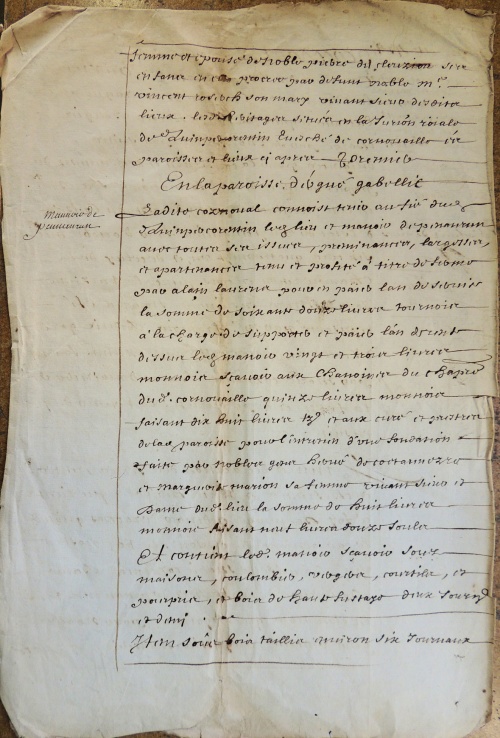 femme et epouse de noble pierre du cleuziou ses
enfans en procree par defunt noble mᵉ
vincent son mary vivant sieur desdits
lieux herittages situes en la Jurion roiale
de Quinpercorentin Evesché de cornouaille es
paroisses et lieux cy apres Premier
En la paroisse d'ergue gabellic
Manoir de
penneuran
Ladite connoist tenir au sie dud
Quinpercorentin led lieu et manoir de penanrun
avec toutes ses issues, preminances, largesses,
et apartenances tenu et profité à titre de ferme
par alain laurens pour en paier lan de ferme
la somme de soixante douze livres tournois
à la charge de suporter et paier lan de rente
dessus led manoir vingt et trois livres
monnoie sçavoir aux chanoines du chapre
dud. cornouaille quinze livres monnoie
faisant dix huit livres tz et aux curé et prestres
de lad paroisse pour l'entretien d'une fondation
faite par nobles gens herve de coetanezre
et Marguerit marion sa femme vivant sieur et
Dame dud. lieu la somme de huit livres
monnoie faisant neuf livres douze soulz
Et contient led. manoir sçavoir soubz
maisons, coulombier, verger, courtils, et
pourpris, et bois de haute fustaye deux Journx
et demi
Item soubz bois taillis environ six Journaux